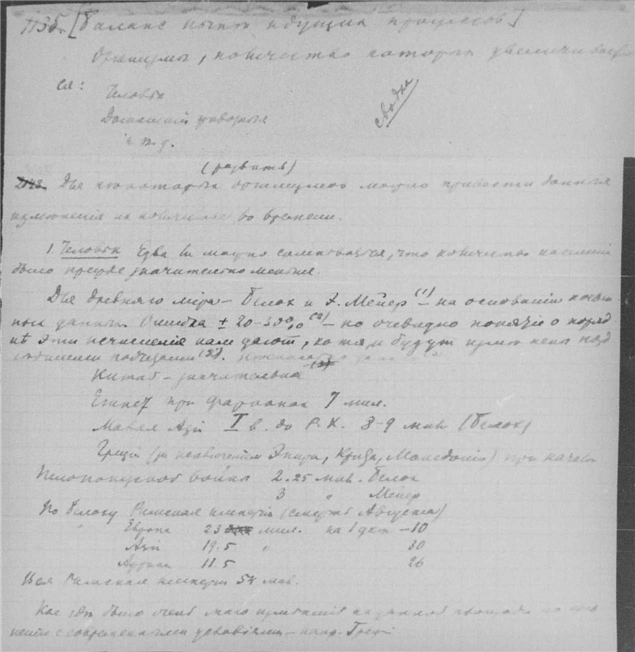 [Баланс ныне идущих процессов]
Организмы, количество которых увеличивает
ся:
Человек
Домашния животныя
и т. д.
сводка
(развить)
Для некоторых организмов можно привести данныя
изменения их количества во времени.
1. Человек Едва ли можно сомневаться, что количество населения
было прежде значительно меньше.
Для древняго мира – Белох и Э. Мейер (1) – на основании
данных Ошибка ± 20-30% (2) – но очевидно понятие о поряд
ке эти исчисления нам дают, хотя и будут
(3).
Китай – значительна
Египет при фараонах 7 мил.
Малая Азия I в. до Р. Х. 8-9 мил. (Белох)
Греция (за исключением Эпира, Крита, Македонии) при начале
Пелопонесской войны 2.25 мил. Белох
3 " Мейер
По Белоху Римская империя (смерть Августа)
Европа 23 мил. на 1 дкт – 10
Азия 19.5 " 30
Африка 11.5 26
Вся Римская империя 54 мил.
Кое где было очень мало изменения
с современными условиями – напр. Греция